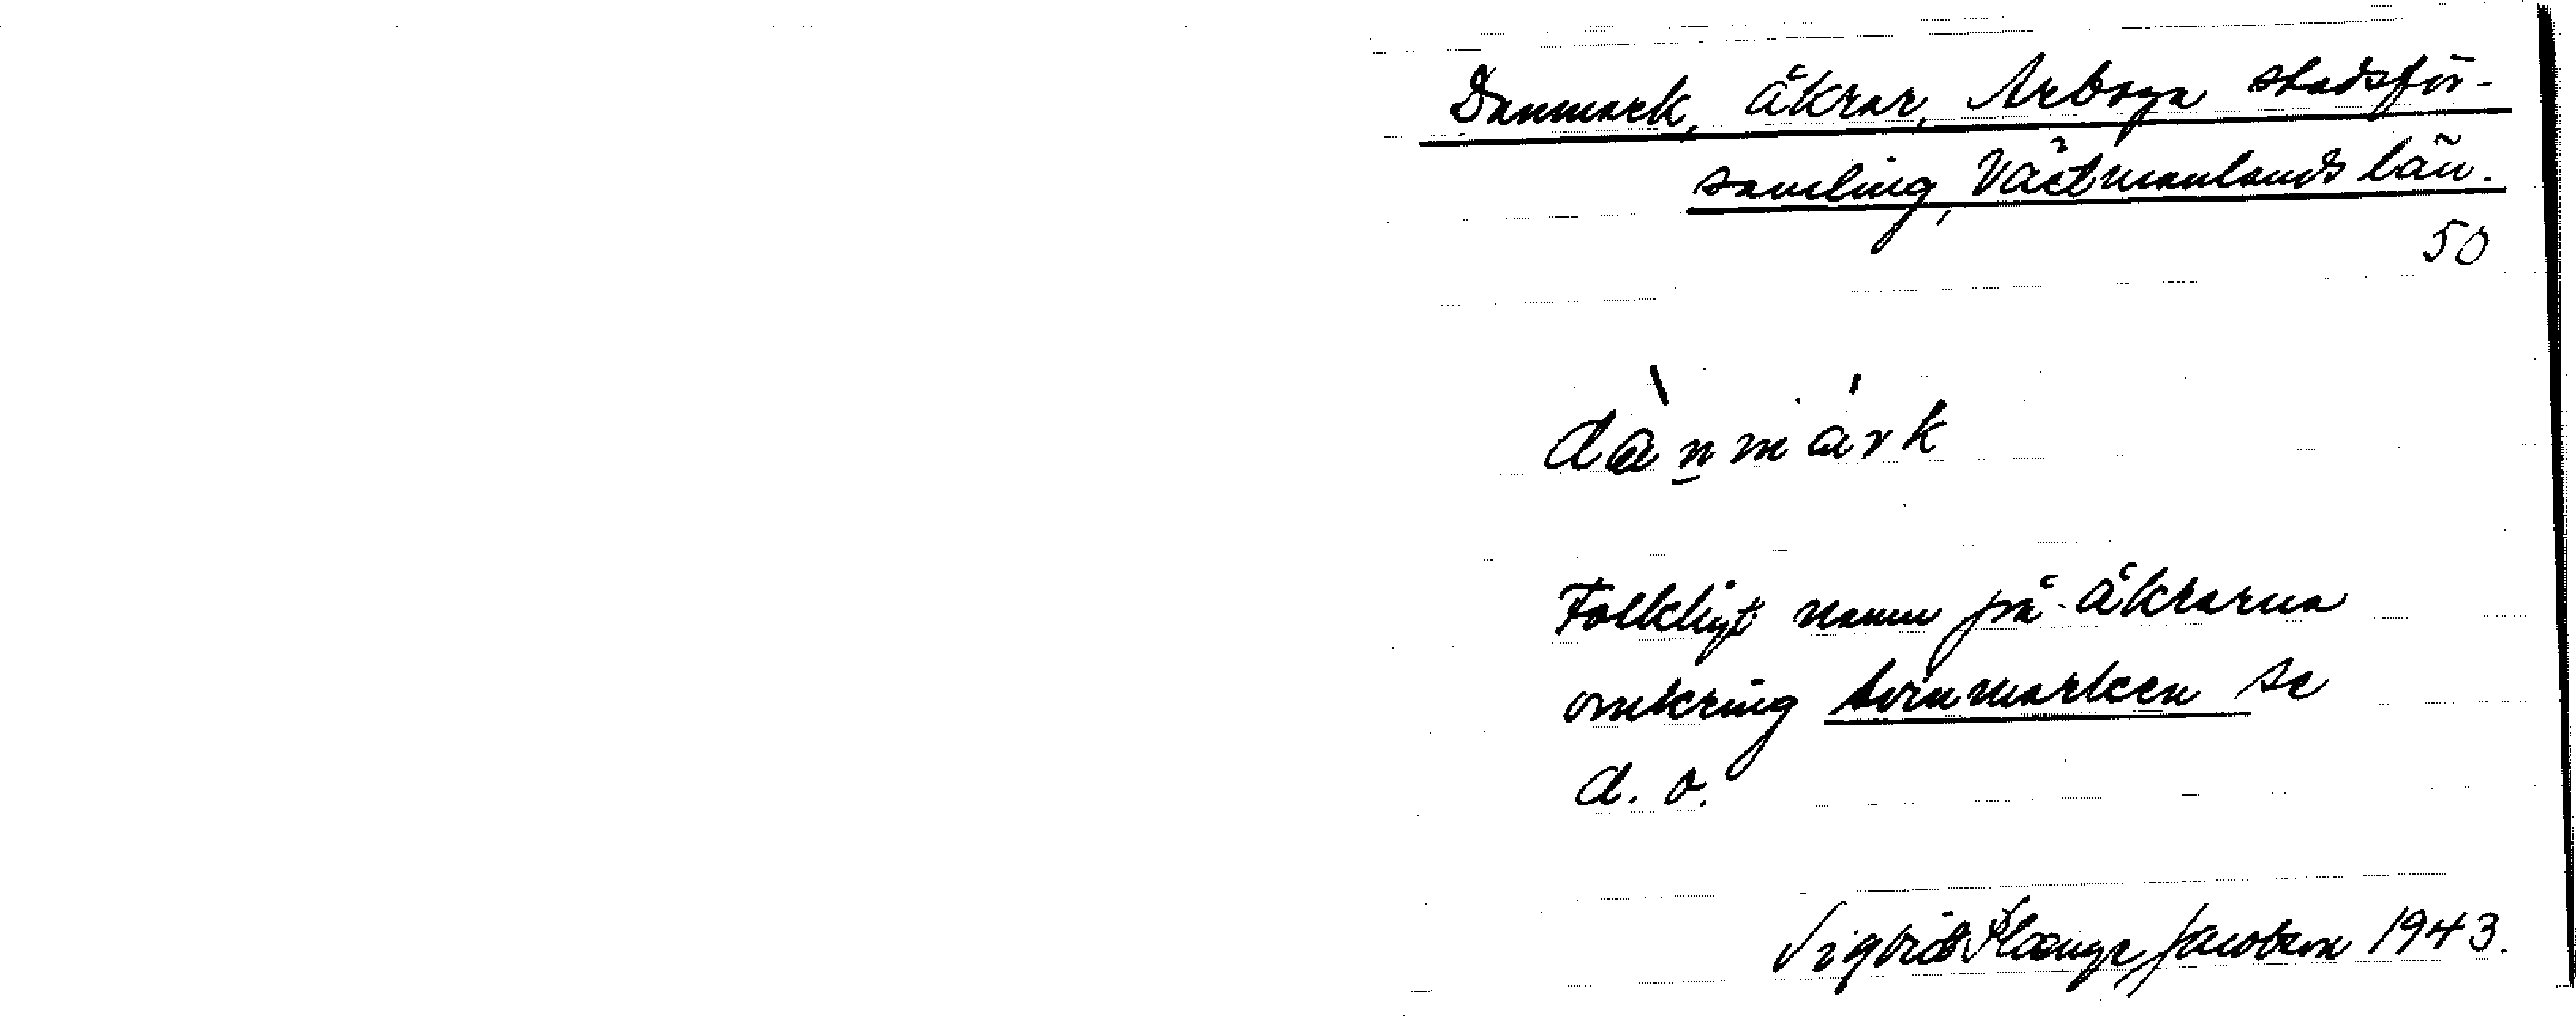 Danmark, åkrar, Arboga stadsför-
samling, Västmanlands län.
50
dànmárk
Folkligt namn på åkrarna
omkring se
d. o.
Sigbrit Plænge Jacobson 1943.